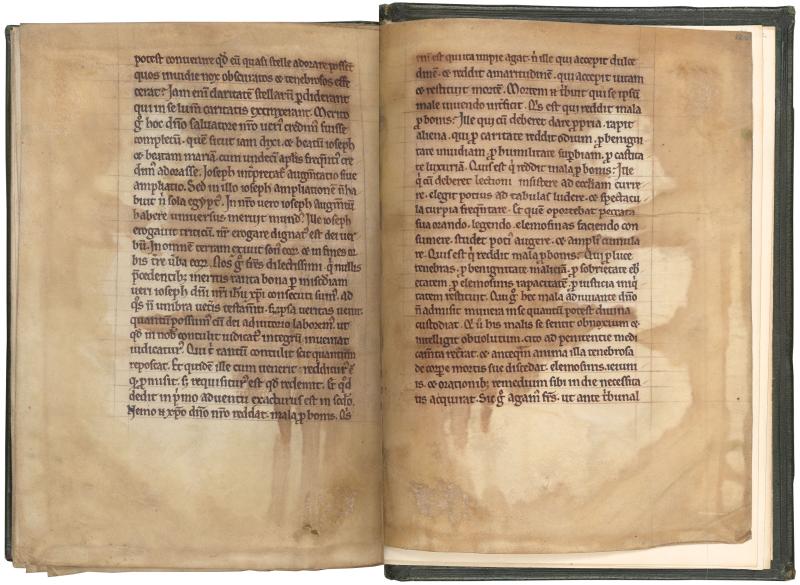 potest convenire qd cu quasi stelle adorare possēt
quos invidie nox obscuratos ⁊ tenebrosos esse
cerat? Iam eni claritate stellarū ꝑdiderant
qui in se lum̄ caritatis extinxerant. Merito
g̊ hoc dn̄o salvatore nr̄o veri credim̄ fuisse
completū. quē sicut iam dixi. ⁊ beatū ioseph
⁊ beatam mariā. cum undecī aplīs freq̄nt̄ cre
dim̄ adorasse. Ioseph int̄pretat̄ augm̄tatio sive
ampliatio. Sed in illo ioseph ampliationē n̄ ha
buit n̄ sola egypt̄. In nr̄o vero ioseph augm̄tū
habere universus meruit mund̄? Ille ioseph
erogavit triticū. nr̄ erogare dignat̄ est dei ver
bū. In omnē terram exivit son̄ eor̄. ⁊ in fines or
bis tr̄e ūba eor̄. Nos g̊ fr̄s dilectissimi. q̄ nullis
p̄cedentib; meritis tanta bona ꝑ mis̄diam
veri ioseph dn̄i nr̄i ihū xp̄i consecuti sum̄. ad
q̊s n̄ umbra vet̄is testam̄ti. s; ip̄sa veritas venit.
quantū possum̄ cū dei adiutorio laborem̄. ut
qd in nob̄ contulit iudicat̄ integrū inveniat
iudicatur̄. Qui ē tantū contulit scit quantum
reposcat. Et quidē ille cum venerit. redditur̄ ē
q̄ ꝓmisit. s; requisitur̄ est qd redemit. Et qd
dedit in p̄mo adventu exacturus est in scd̄o.
Nemo ḡ xp̄o dn̄o nr̄o reddat mala ꝓ bonis. Q̄s
eni est qui ita impie agat. n̄ ille qui accepit dulce
dinē. ⁊ reddit amaritudinē. qui accepit vitam
⁊ restituit mortē. Mortem ḡ tb̄unt qui se ip̄sū
male vivendo int̄ficit. Q̄s est qui reddit mala
ꝓ bonis? Ille qui cū deberet dare ꝓpria. rapit
aliena. qui ꝓ caritate reddit odium. ꝓ benigni
tate invidiam. ꝓ humilitate suꝑbiam. ꝓ castita
te luxuriā. Quis est q̄ reddit mala ꝓ bonis? Ille
q̄ cū deberet lectioni insistere ad eccl̄iam curre
re. elegit potius ad tabulas ludere. ⁊ spectacu
la turpia freq̄ntare. Et quē oportebat peccata
sua orando. legendo. elemosinas faciendo con
sumere. studet poti̊ augere. ⁊ ampli̊ cumula
re. Quis est q̄ reddit mala ꝓ bonis. Qui ꝓ luce
tenebras. ꝓ benignitate maliciā. ꝓ sobrietate eb̄
etatem. ꝓ elemosinis rapacitatē. ꝓ iusticia iniq̄
tatem restituit. Qui g̊ hec mala adiuvante dn̄o
n̄ admisit munera in se quantū potest divina
custodiat. Q̄ n̄ his malis se sentit obnoxium ⁊
intelligit obvolutum. cito ad penitentie medi
cam̄ta rec̄rat. ⁊ anteq̄m anima illa tenebrosa
de corꝑe mortis sue discedat. elemosinis. ieiuni
is. ⁊ orationib; remedium sibi in die necessita
tis acquirat. Sic g̊ agam̄ fr̄s. ut ante tb̄unal